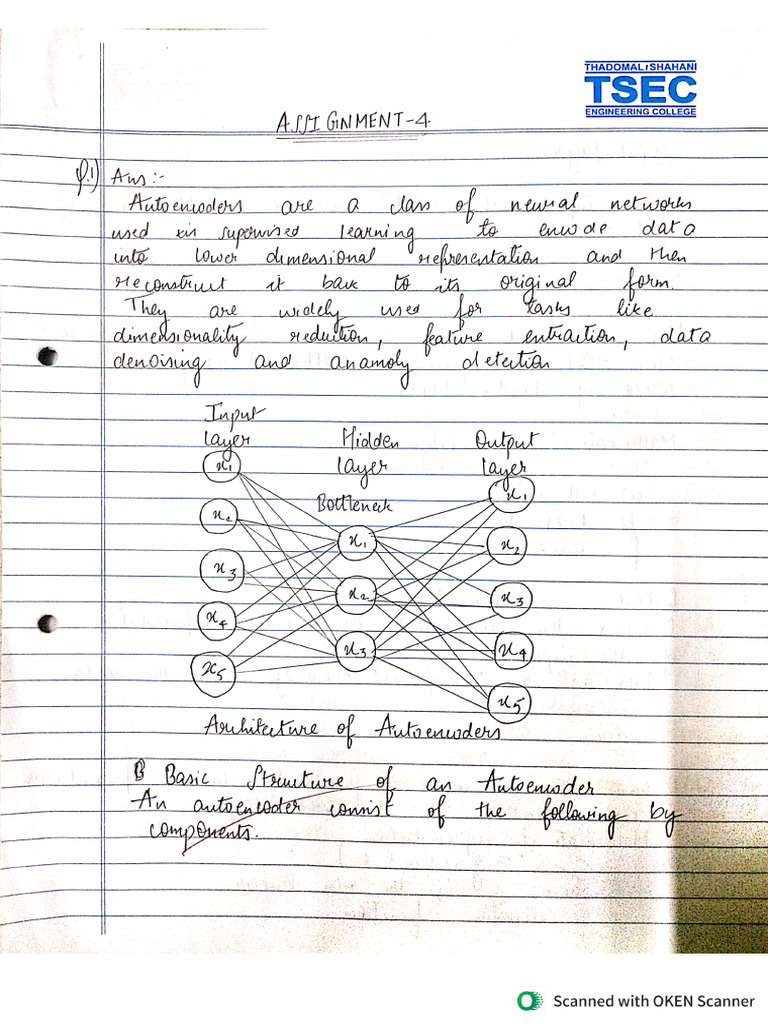 THADOMAL SHAHANI
TSEC
ENGINEERING COLLEGE
ASSIGNMENT-4
Q.1) Ans:-
Autoencoders are a class of neural networks
used in supervised learning to encode data
into lower dimensional representation and then
reconstruct it back to its original form.
They are widely used for tasks like
dimensionality reduction, feature extraction, data
denoising and anamoly detection
Input
layer
Hidden
layer
Output
layer
Bottleneck
x1
x2
x3
x4
x5
x1
x2
x3
x1
x2
x3
x4
x5
Architecture of Autoencoders
Basic Structure of an Autoencoder
An autoencoder consist of the following by
components.
Scanned with OKEN Scanner